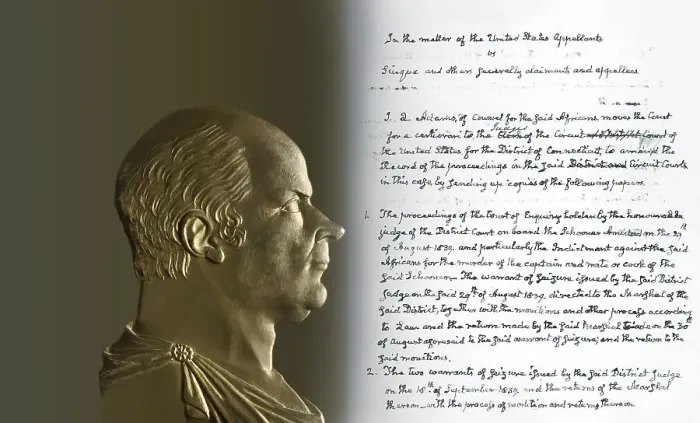 In the matter of the United States Appellants
vs
Cinque and others severally claimants and appellees
J. Q. Adams, of Counsel for the said Africans, moves the Court
Judges
for a certiorari to the Clerk of the Circuit Court of
the United States for the District of Connecticut, to amend the
Record of the proceedings in the said District and Circuit Courts
in this case, by sending up copies of the following papers.
1. The proceedings of the Court of Enquiry holden by the honourable
judge of the District Court on board the Schooner Amistad on the 29th
of August 1839 and particularly the Indictment against the said
Africans for the murder of the captain and mate or cook of the
said Schooner. The warrant of seizure issued by the said District
Judge on the said 29th of August 1839, directed to the Marshal of the
said District, together with the monitions and other process according
to Law and the return made by the said Marshal on the 30th
of August aforesaid to the said warrant of seizure; and the return to the
said monitions.
2. The two warrants of seizure issued by the said District Judge
on the 18th of September 1839 and the returns of the Marshal
thereon with the process of monition and returns thereon